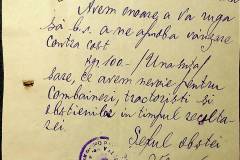 Avem onoare, a vă ruga
să b.v. a ne aproba vânzare
contra cost
kg 100 - /Una sută/
sare, ce avem nevoie pentru
combaineri, tractoristi si
obștienilor in timpul recolta-
rei.
Șeful obstei